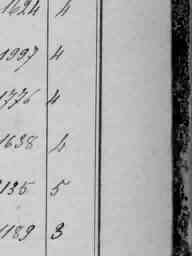 1624 4
1997 4
1776 4
1638 4
135 5
1189 3